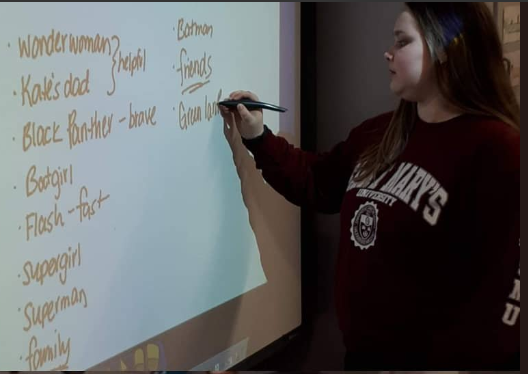 · Wonderwoman } helpful
· Kate's dad
· Black Panther - brave
· Batgirl
· Flash - fast
· Supergirl
· Superman
· family
· Batman
· friends
· Green lan
MARY'S
UNIVERSITY